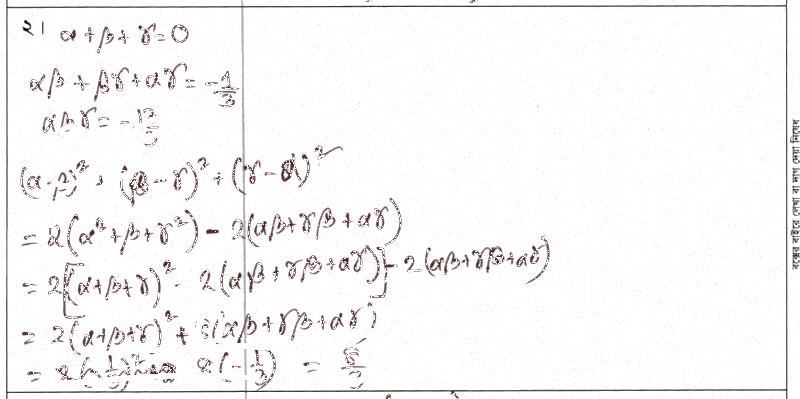 ২। α + β + γ = 0
αβ + βγ + αγ = -1/3
αβγ = -
(α - β)² + (β - γ)² + (γ - α)²
= 2(α² + β + γ²) - 2(αβ + γβ + αγ)
= 2[(α+β+γ)² - 2(αβ + γβ + αγ)] - 2(αβ+γβ+αγ)
= 2(α+β+γ)² + (αβ + γβ + αγ)
= (-1/3) =
বক্সের বাইরে লেখা বা দাগ দেয়া নিষেধ